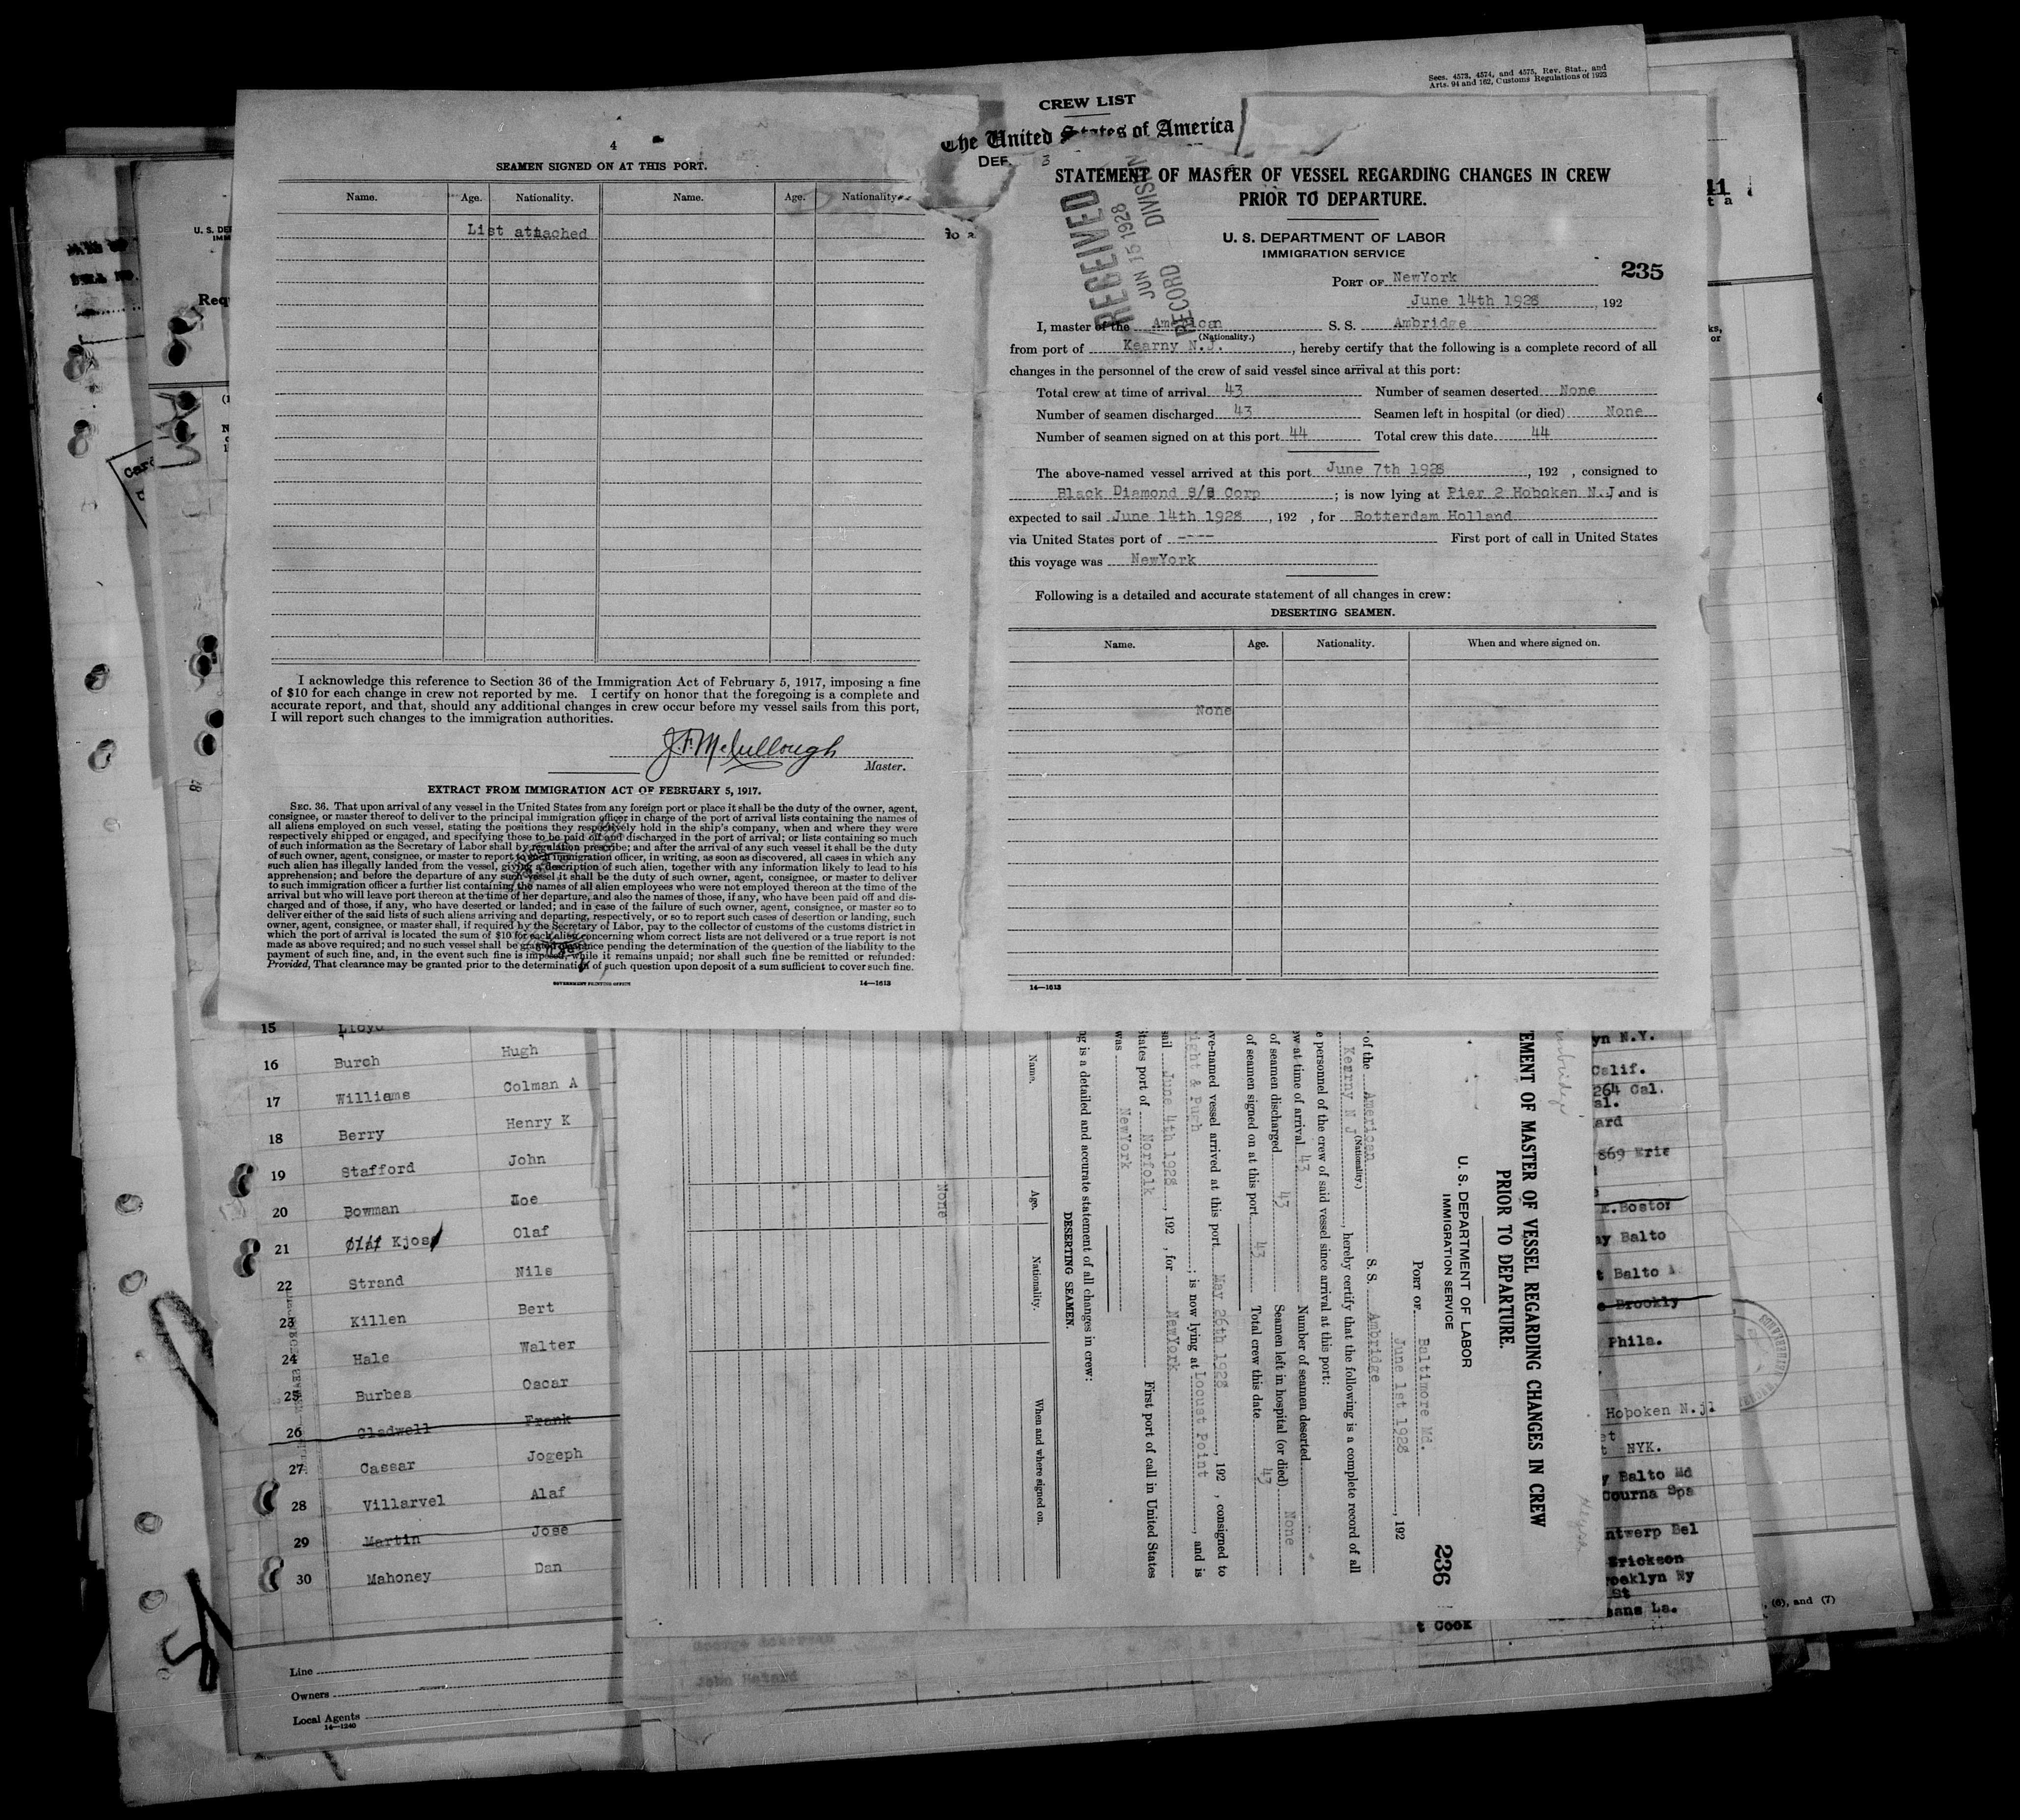 Secs. 4573, 4574, and 4575, Rev. Stat., and
Arts. 94 and 162, Customs Regulations of 1923
CREW LIST
The United States of America
DEF. 3
4
SEAMEN SIGNED ON AT THIS PORT.
Name. Age. Nationality. Name. Age. Nationality
List attached
I acknowledge this reference to Section 36 of the Immigration Act of February 5, 1917, imposing a fine
of $10 for each change in crew not reported by me. I certify on honor that the foregoing is a complete and
accurate report, and that, should any additional changes in crew occur before my vessel sails from this port,
I will report such changes to the immigration authorities.
J.F. McCullough
Master.
EXTRACT FROM IMMIGRATION ACT OF FEBRUARY 5, 1917.
SEC. 36. That upon arrival of any vessel in the United States from any foreign port or place it shall be the duty of the owner, agent,
consignee, or master thereof to deliver to the principal immigration officer in charge of the port of arrival lists containing the names of
all aliens employed on such vessel, stating the positions they respectively hold in the ship's company, when and where they were
respectively shipped or engaged, and specifying those to be paid off and discharged in the port of arrival; or lists containing so much
of such information as the Secretary of Labor shall by regulation prescribe; and after the arrival of any such vessel it shall be the duty
of such owner, agent, consignee, or master to report to such immigration officer, in writing, as soon as discovered, all cases in which any
such alien has illegally landed from the vessel, giving a description of such alien, together with any information likely to lead to his
apprehension; and before the departure of any such vessel it shall be the duty of such owner, agent, consignee, or master to deliver
to such immigration officer a further list containing the names of all alien employees who were not employed thereon at the time of the
arrival but who will leave port thereon at the time of her departure, and also the names of those, if any, who have been paid off and dis-
charged and of those, if any, who have deserted or landed; and in case of the failure of such owner, agent, consignee, or master so to
deliver either of the said lists of such aliens arriving and departing, respectively, or so to report such cases of desertion or landing, such
owner, agent, consignee, or master shall, if required by the Secretary of Labor, pay to the collector of customs of the customs district in
which the port of arrival is located the sum of $10 for each alien concerning whom correct lists are not delivered or a true report is not
made as above required; and no such vessel shall be granted clearance pending the determination of the question of the liability to the
payment of such fine, and, in the event such fine is imposed, while it remains unpaid; nor shall such fine be remitted or refunded:
Provided, That clearance may be granted prior to the determination of such question upon deposit of a sum sufficient to cover such fine.
GOVERNMENT PRINTING OFFICE 14—1613
STATEMENT OF MASTER OF VESSEL REGARDING CHANGES IN CREW
PRIOR TO DEPARTURE.
RECEIVED
JUN 15 1928
RECORD DIVISION
U. S. DEPARTMENT OF LABOR
IMMIGRATION SERVICE
235
PORT OF NewYork
June 14th 1928, 192
I, master of the American S. S. Ambridge
(Nationality.)
from port of Kearny N.J., hereby certify that the following is a complete record of all
changes in the personnel of the crew of said vessel since arrival at this port:
Total crew at time of arrival 43 Number of seamen deserted None
Number of seamen discharged 43 Seamen left in hospital (or died) None
Number of seamen signed on at this port 44 Total crew this date 44
The above-named vessel arrived at this port June 7th 1928, 192 , consigned to
Black Diamond S/S Corp ; is now lying at Pier 2 Hoboken N.J. and is
expected to sail June 14th 1928, 192 , for Rotterdam Holland
via United States port of ---- First port of call in United States
this voyage was NewYork
Following is a detailed and accurate statement of all changes in crew:
DESERTING SEAMEN.
Name. Age. Nationality. When and where signed on.
None
14—1613
15 Lloyd
16 Burch Hugh
17 Williams Colman A
18 Berry Henry K
19 Stafford John
20 Bowman
21 Olaf Kjos Olaf
22 Strand Nils
23 Killen Bert
24 Hale Walter
25 Burbes Oscar
26 Gladwell Frank
27 Cassar Jogeph
28 Villarvel Alaf
29 Martin Jose
30 Mahoney Dan
Line
Owners
Local Agents
14—1240
TEMENT OF MASTER OF VESSEL REGARDING CHANGES IN CREW
PRIOR TO DEPARTURE.
U. S. DEPARTMENT OF LABOR
IMMIGRATION SERVICE
236
PORT OF Baltimore Md.
June 1st 1928, 192
of the American S. S. Ambridge
(Nationality.)
Kearny N J, hereby certify that the following is a complete record of all
e personnel of the crew of said vessel since arrival at this port:
w at time of arrival 43 Number of seamen deserted
of seamen discharged 43 Seamen left in hospital (or died) None
of seamen signed on at this port 43 Total crew this date 43
ve-named vessel arrived at this port May 26th 1928, 192 , consigned to
ight & Pugh ; is now lying at Locust Point, and is
ail June 4th 1928, 192 , for NewYork
States port of Norfolk First port of call in United States
was NewYork
ng is a detailed and accurate statement of all changes in crew:
DESERTING SEAMEN.
Name. Age. Nationality. When and where signed on.
None
yn N.Y.
Calif.
264 Cal.
al.
ard
869 Erie
E.Boston
ay Balto
t Balto
e Brookly
Phila.
Hoboken N.j
et
t NYK.
y Balto Md
Courna Spa
ntwerp Bel
Erickson
rooklyn Ny
St
eans La.
t Cook
, (6), and (7)
George Ackerman
John Hetard 38